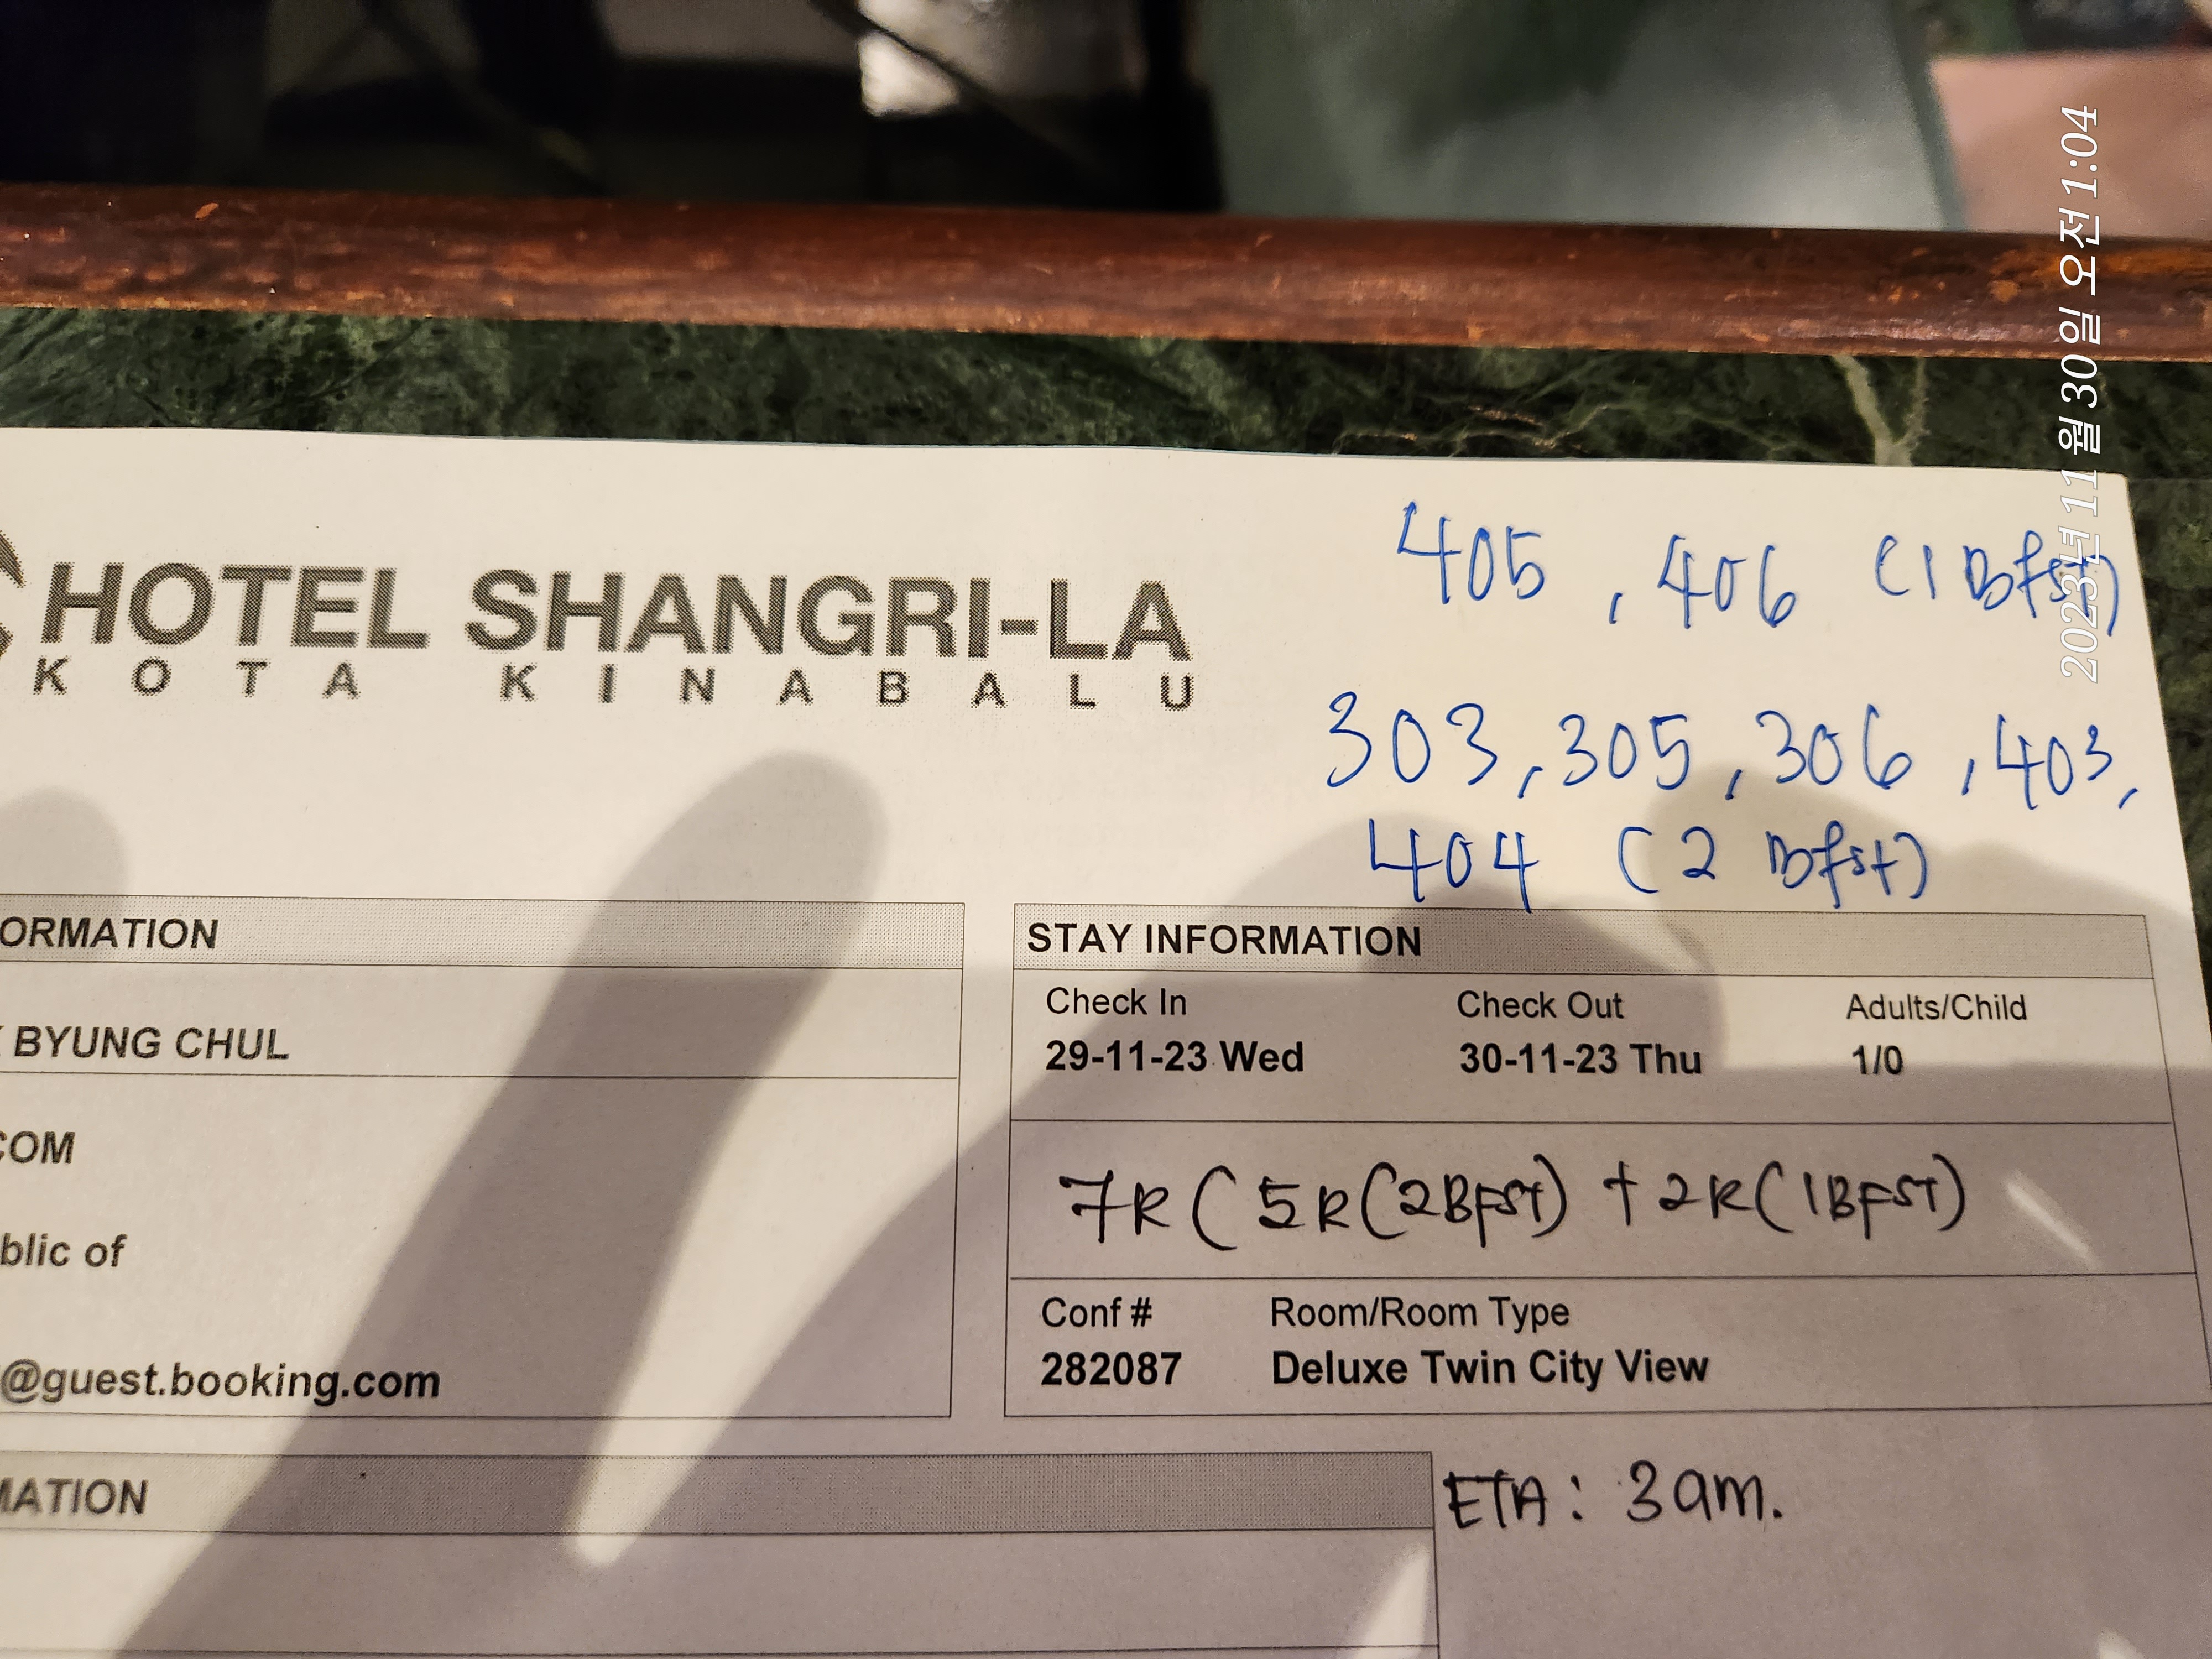 405, 406 (1 Bfst)
303, 305, 306, 403,
404 (2 Bfst)
HOTEL SHANGRI-LA
KOTA KINABALU
ORMATION
BYUNG CHUL
COM
blic of
@guest.booking.com
STAY INFORMATION
Check In Check Out Adults/Child
29-11-23 Wed 30-11-23 Thu 1/0
7R (5R(2BFST) + 2R(1BFST)
Conf # Room/Room Type
282087 Deluxe Twin City View
MATION
ETA: 3am.
2023년 11월 30일 오전 1:04